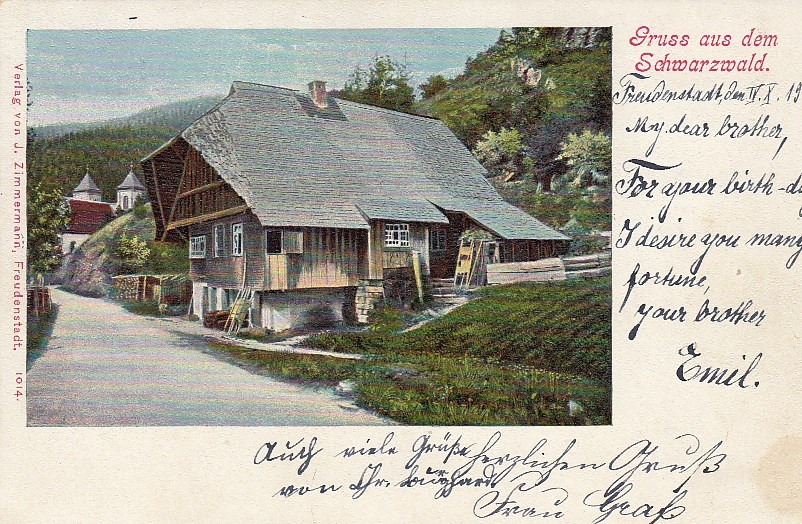 Gruss aus dem
Schwarzwald.
Freudenstadt, den II. X. 19
My dear brother,
For your birth-d
I desire you many
fortune,
your brother
Emil.
Auch viele Grüße
von Chr. Burghard.
herzlichen Gruß
Frau Graf
Verlag von J. Zimmermann, Freudenstadt. 1014.